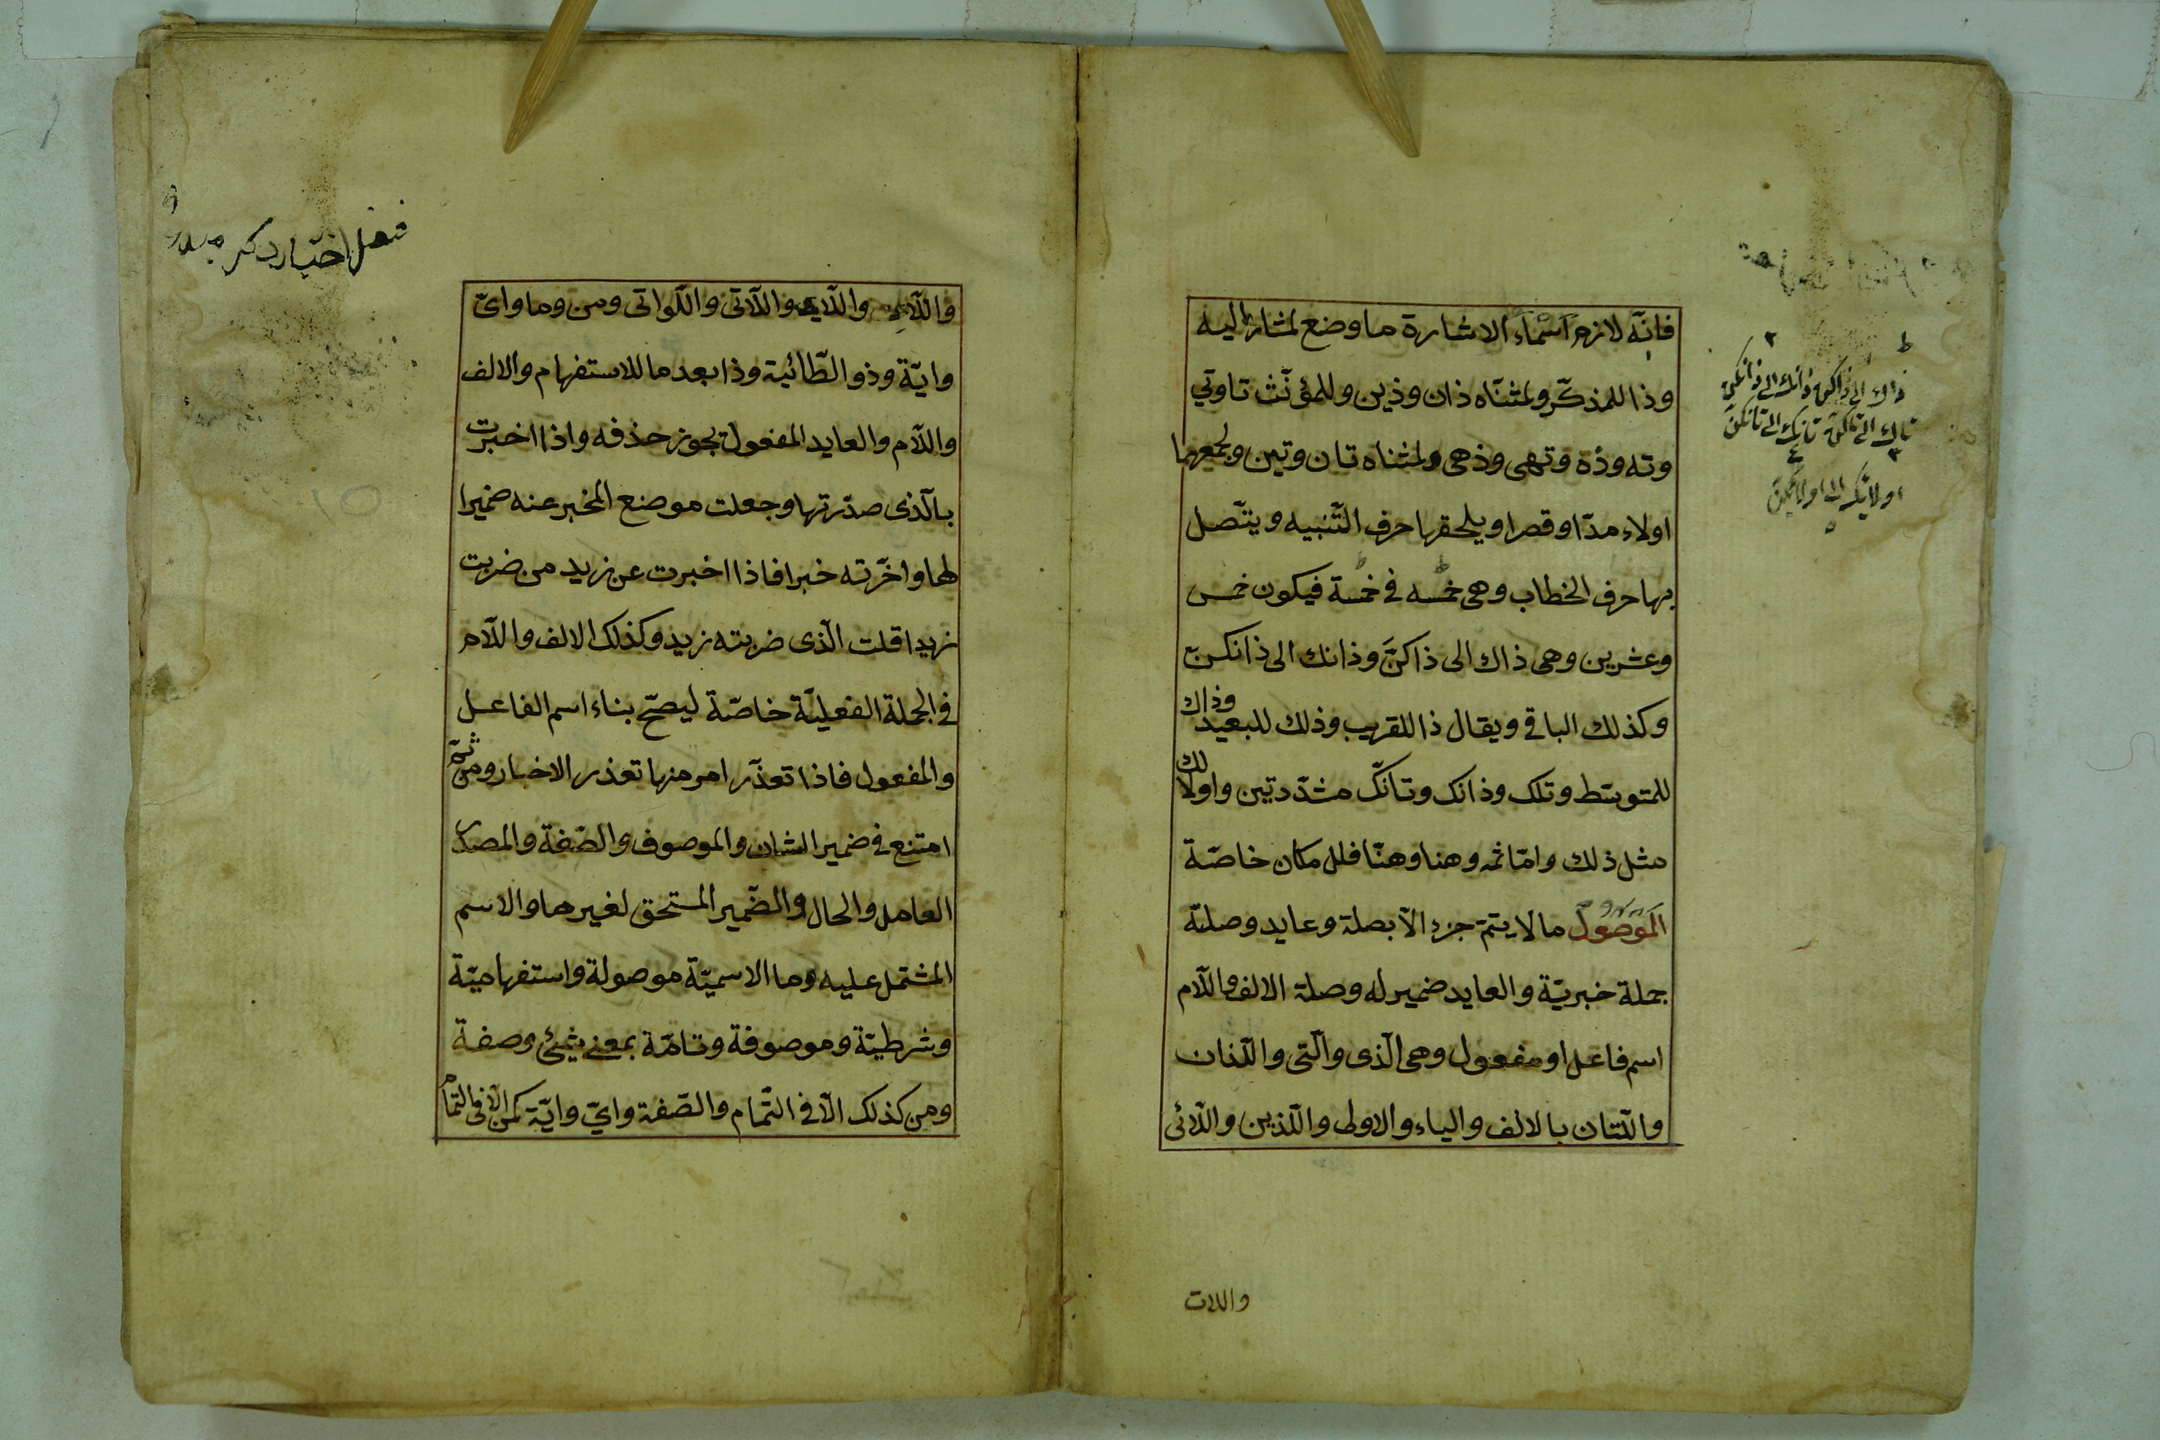 فانّه لازم اسماء الاشارة ما وضع لمشار اليه
وذا للمذكّر ولمثنّاه ذان وذين وللمؤنّث تا وتي
وته وذه وتهى وذهى ولمثناه تان وتين ولجمعهما
اولاء مدّا وقصرا ويلحقها حرف التّنبيه ويتّصل
بها حرف الخطاب وهى خمسه فى خمسة فيكون خمس
وعشرين وهى ذاك الى ذاكنّ وذانك الى ذانكنّ
وكذلك الباقى ويقال ذا للقريب وذلك للبعيد وذاك
للمتوسّط وتلك وذانّك وتانّك مشدّدتين واولالك
مثل ذلك وامّا ثمه وهنا وهنّا فللمكان خاصّة
الموصول ما لا يتمّ جزء الّا بصلة وعايد وصلته
جملة خبريّة والعايد ضمير له وصلة الالف واللّام
اسم فاعل او مفعول وهى الّذى والّتى واللّذان
واللّتان بالالف والياء والاولى والّذين واللّائى
واللات
ذاك الى ذاكن ذانك الى ذانكن
تاك الى تاكن تانك الى تانكن
اولائك الى اولائكن
واللّاء واللّاى واللّاتى واللّواتى ومن وما واىّ
وايّة وذو الطّائيّة وذا بعد ما للاستفهام والالف
واللّام والعايد المفعول يجوز حذفه واذا اخبرت
بالّذى صدّرتها وجعلت موضع المخبر عنه ضميرا
لها واخّرته خبرا فاذا اخبرت عن زيد من ضربت
زيدا قلت الّذى ضربته زيد وكذلك الالف واللّام
فى الجملة الفعليّة خاصّة ليصحّ بناء اسم الفاعل
والمفعول فاذا تعذّر امر منها تعذر الاخبار ومن ثمّ
امتنع فى ضمير الشان والموصوف والصّفة والمصدر
العامل والحال والضّمير المستحق لغيرها والاسم
المشتمل عليه وما الاسميّة موصولة واستفهاميّة
وشرطيّة وموصوفة وتامّة بمعنى شئ وصفة
ومن كذلك الّا فى التّمام والصّفة واىّ وايّة كمن الّا فى التمام